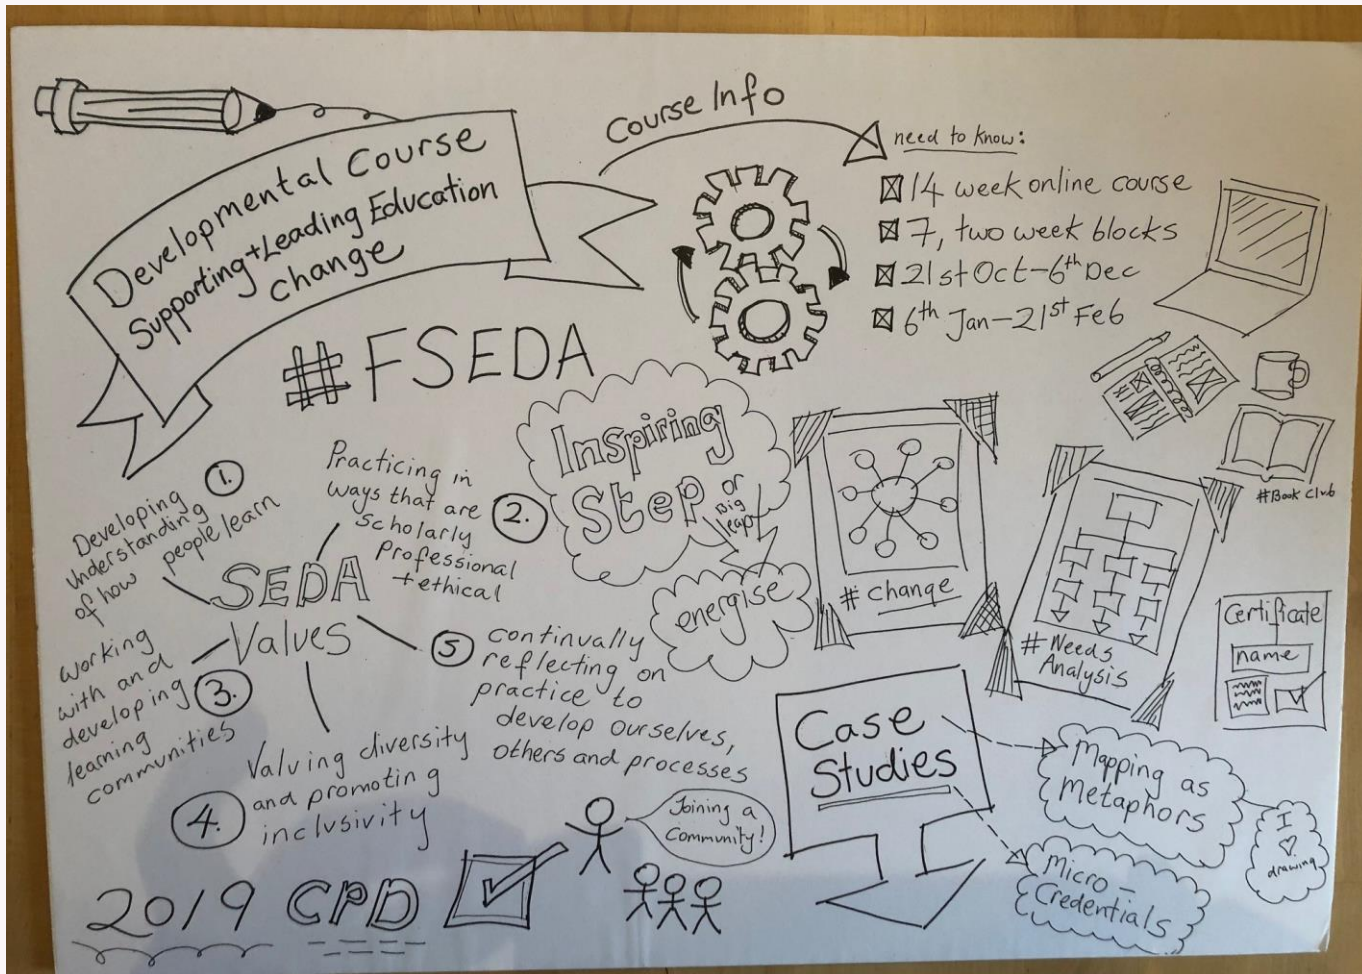 Developmental Course
Supporting + Leading Education
Change
#FSEDA
Course Info
need to know:
14 week online course
7, two week blocks
21st Oct - 6th Dec
6th Jan - 21st Feb
Inspiring
Step or
Big
leap
energise
SEDA
Values
1.
Developing
understanding
of how people learn
2.
Practicing in
ways that are
scholarly
professional
+ ethical
3.
working
with and
developing
learning
communities
4.
Valuing diversity
and promoting
inclusivity
5
continually
reflecting on
practice to
develop ourselves,
others and processes
# change
# Needs
Analysis
#Book Club
Certificate
name
Case
Studies
Mapping as
Metaphors
I
♡
drawing
Micro-
Credentials
Joining a
Community!
2019 CPD